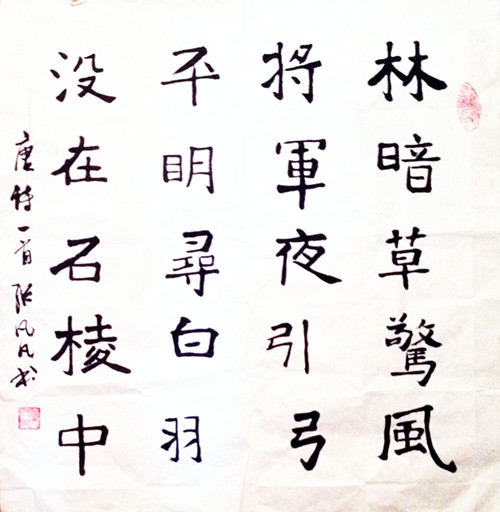 林暗草驚風
將軍夜引弓
平明尋白羽
没在石棱中
唐诗一首 张凡凡书